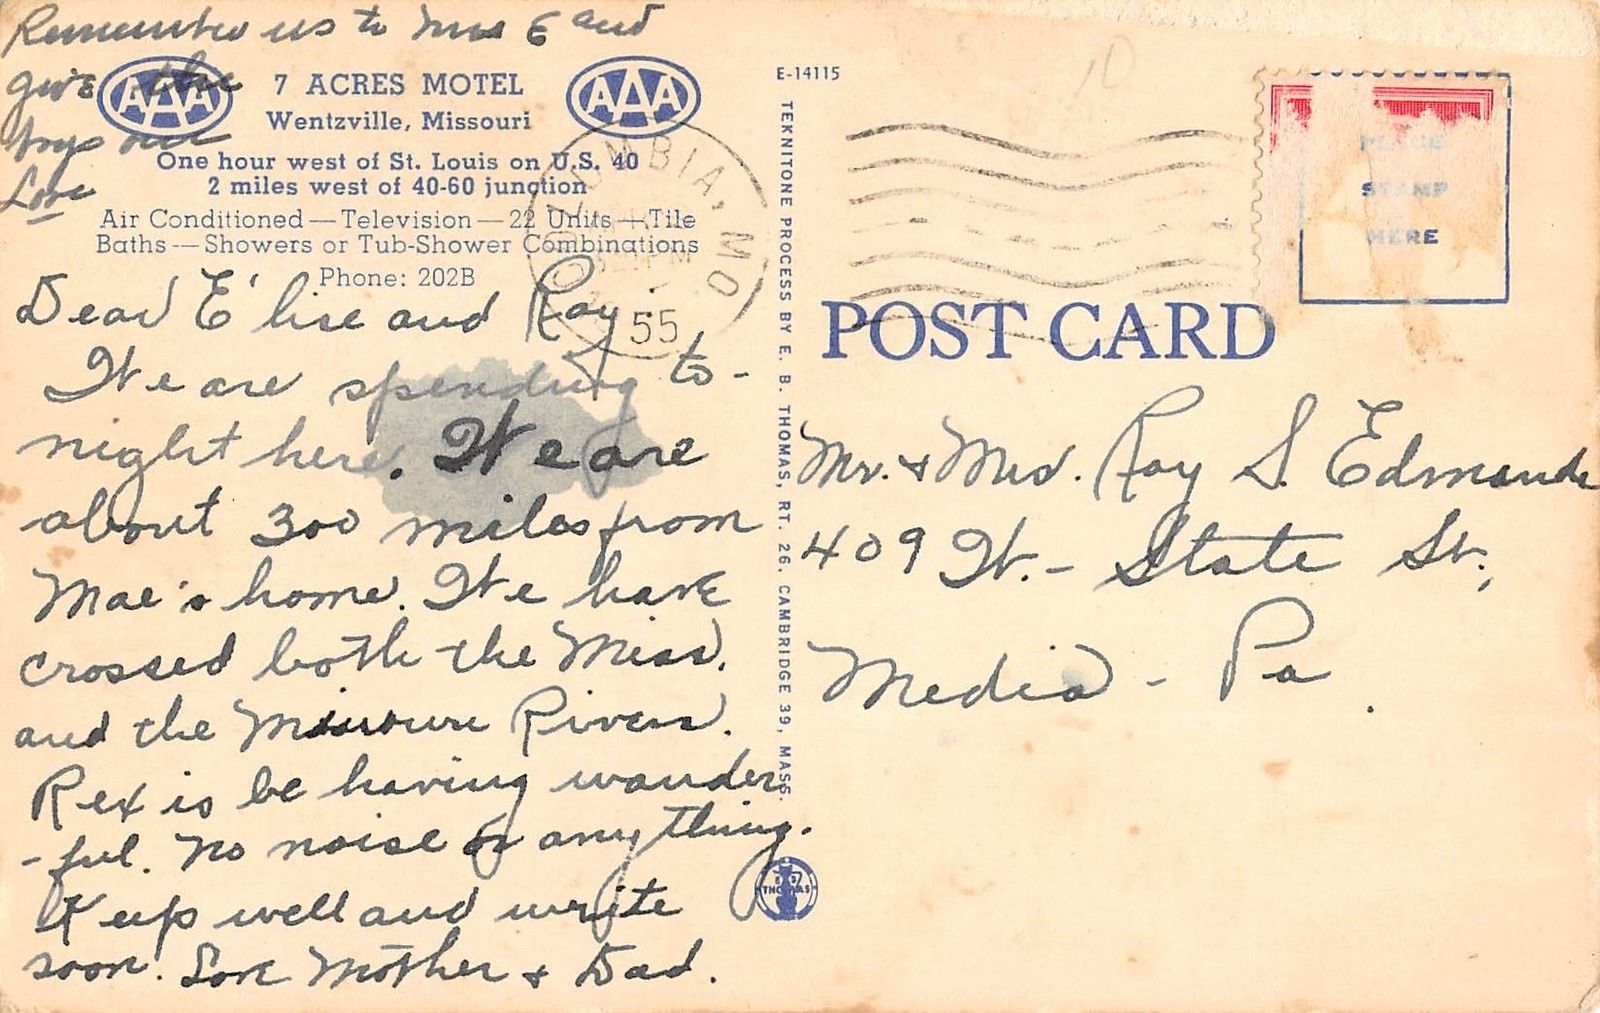 Remember us to Mrs E and
give the
boys our
Love
AAA 7 ACRES MOTEL AAA
Wentzville, Missouri
One hour west of St. Louis on U.S. 40
2 miles west of 40-60 junction
Air Conditioned — Television — 22 Units — Tile
Baths — Showers or Tub-Shower Combinations
Phone: 202B
COLUMBIA, MO
PM
55
Dear E'lise and Ray
We are spending to-
night here. We are
about 300 miles from
Mae's home. We have
crossed both the Miss.
and the Missouri Rivers.
Rex is be having wonder
-ful. No noise or anything.
Keep well and write
soon! Love Mother & Dad.
E-14115
TEKNITONE PROCESS BY E. B. THOMAS, RT. 26, CAMBRIDGE 39, MASS.
THOMAS
PLACE
STAMP
HERE
POST CARD
Mr. & Mrs. Ray S. Edmunds
409 W. - State St.,
Media - Pa.